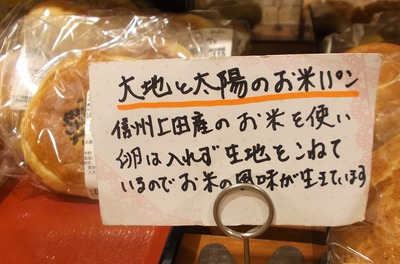 大地と太陽のお米パン
信州上田産のお米を使い
卵は入れず生地をこねて
いるのでお米の風味が生きています